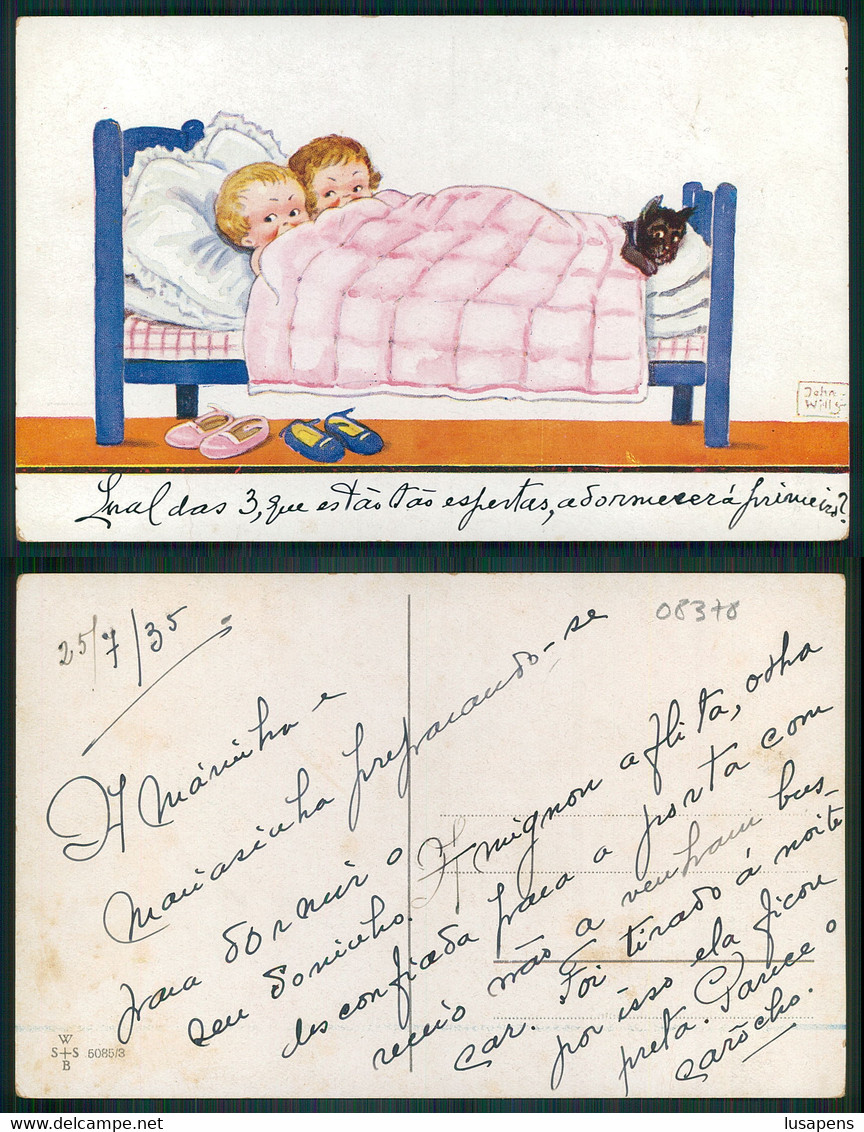 John
Wills
Qual das 3, que estão tão espertas, adormecerá primeiro?
25/7/35
08378
A Máricha e
Mariasinha preparando-se
para dormir o
seu soninho. A mignon aflita, olha
desconfiada para a porta com
receio não a venham bus-
car. Foi tirado á noite
por isso ela ficou
preta. Parece o
carôcho.
W
S+S 5085/3
B
www.delcampe.net
lusapens